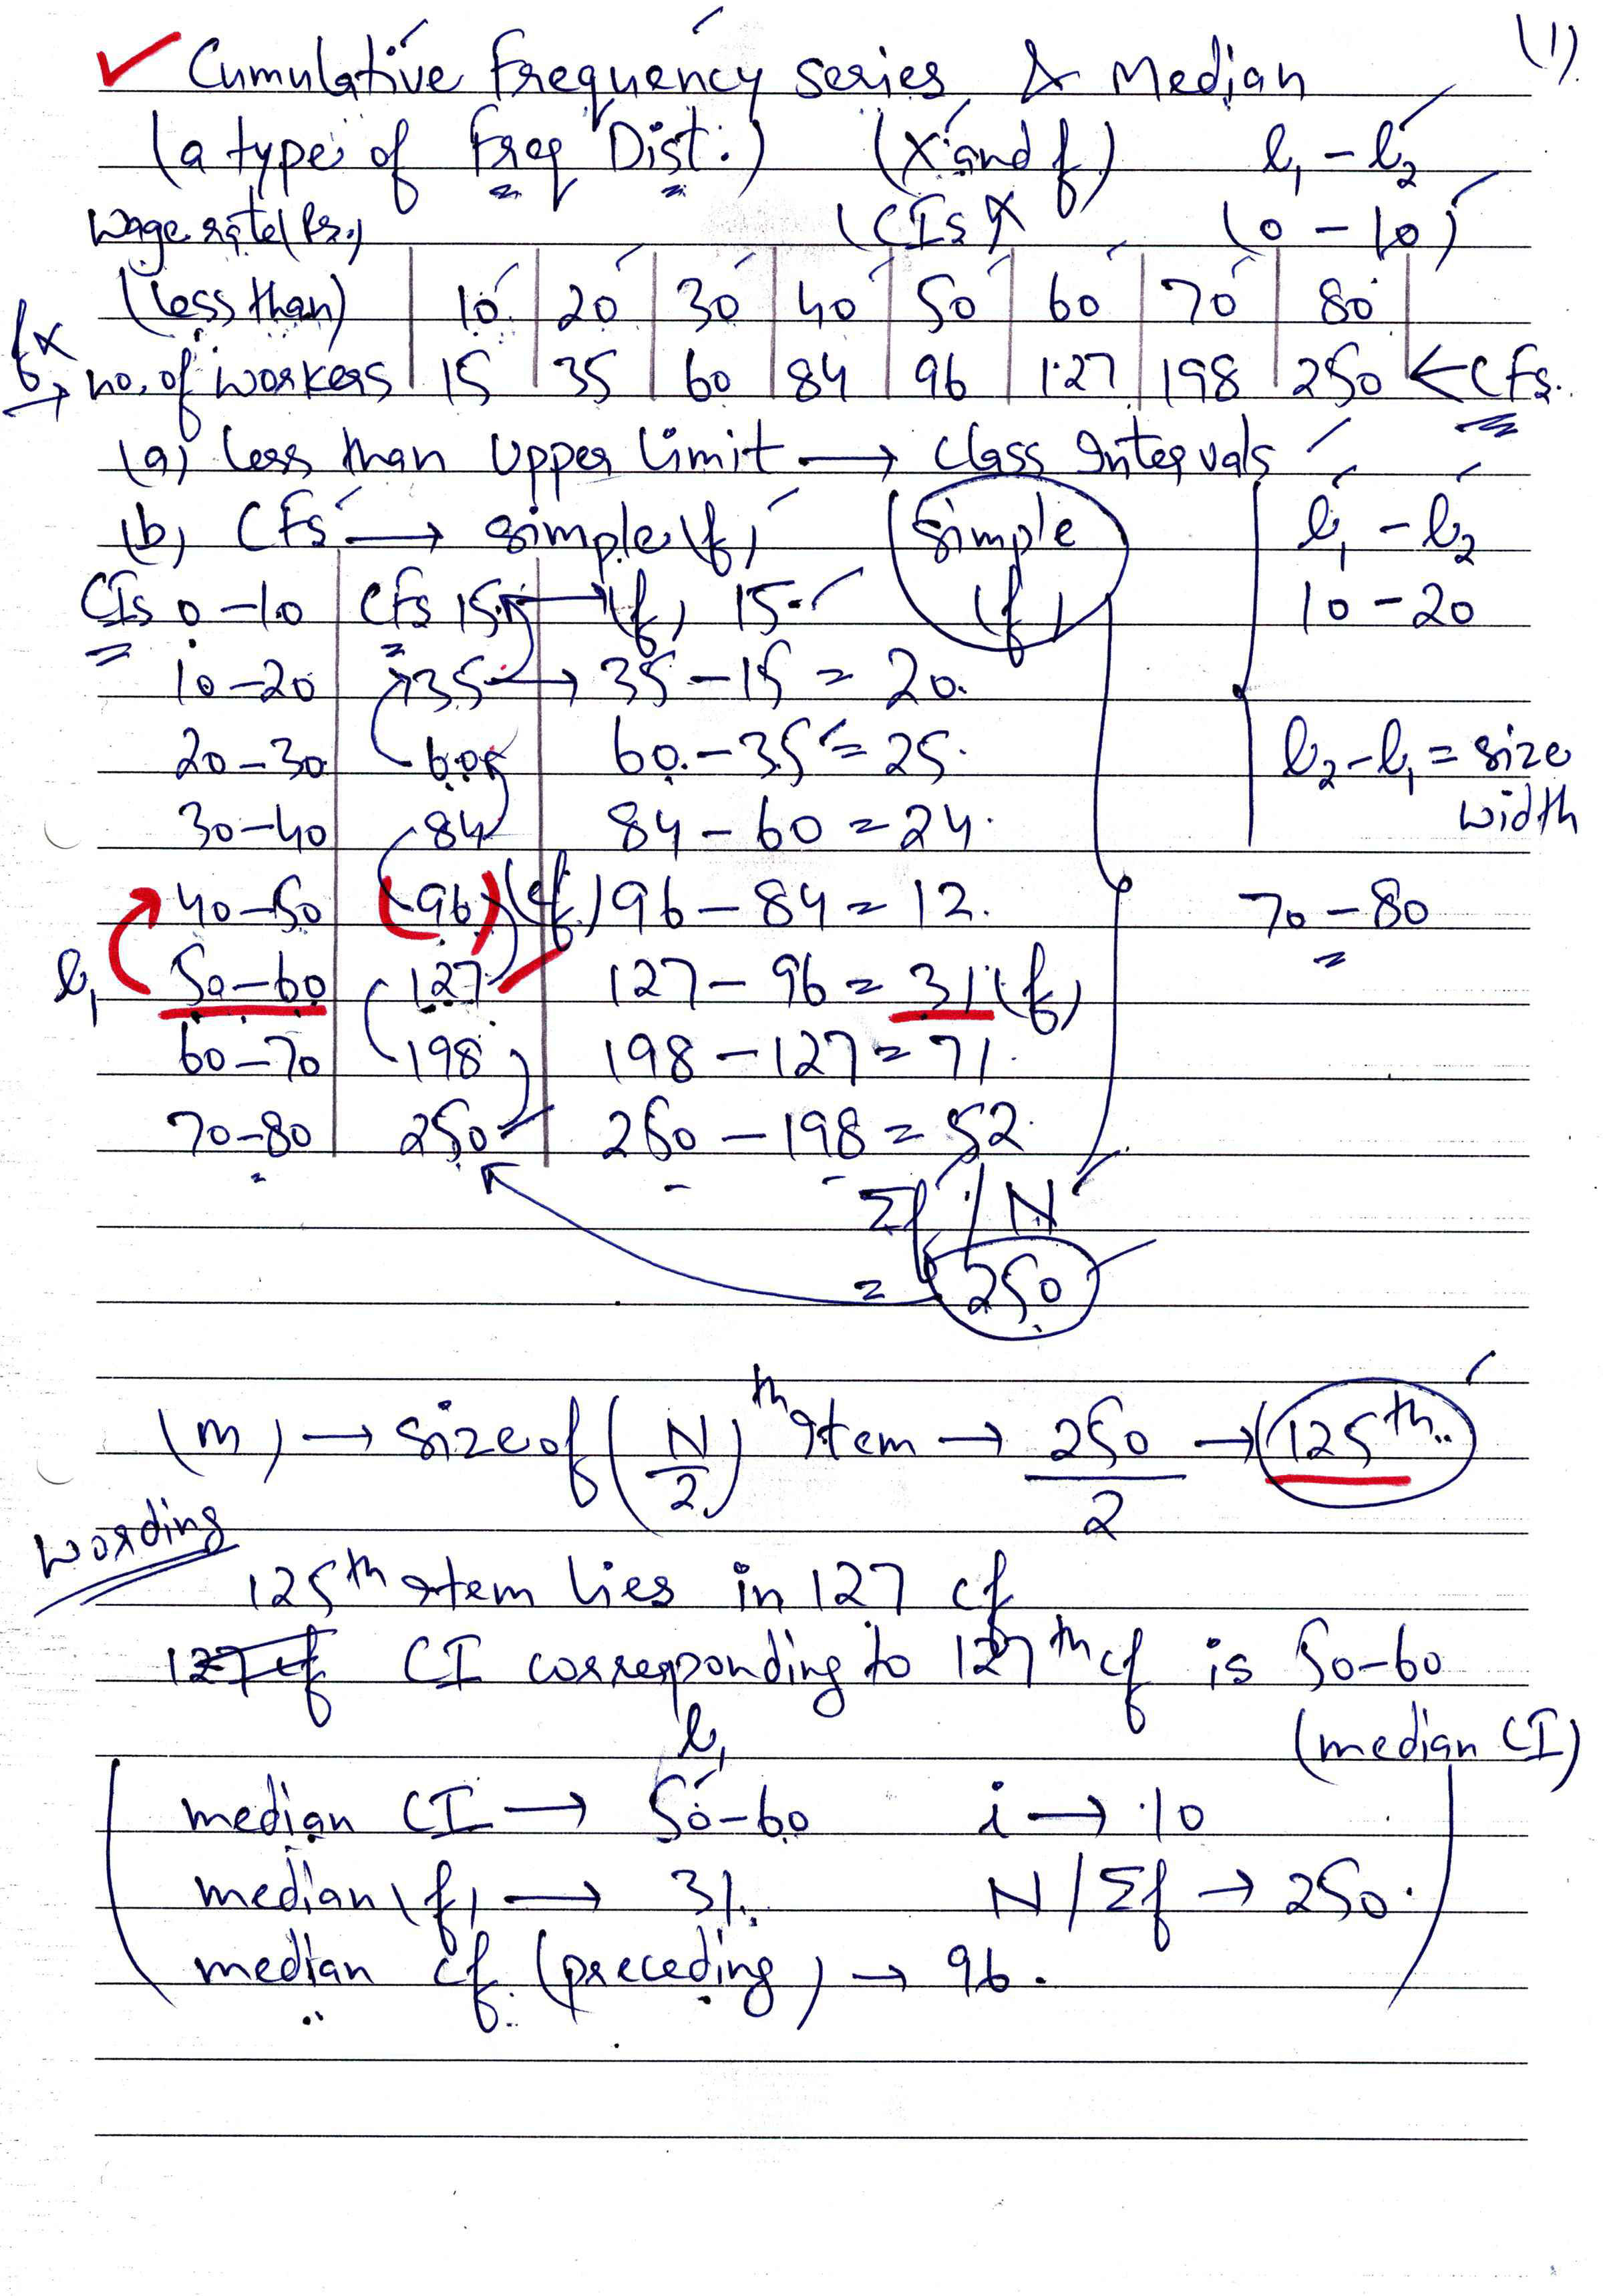 (1)
✓ Cumulative Frequency series & Median
(a type of Freq Dist.) (X and f) l₁ – l₂
Wage rate (Rs.) (CIs X (0 – 10)
(less than) 10 20 30 40 50 60 70 80
f x → no. of workers 15 35 60 84 96 127 198 250 ← CFs.
(a) less than Upper limit → Class Intervals
(b) CFs → simple (f) (simple (f)) l₁ – l₂
CIs 0 – 10 CFs 15 → (f) 15 10 – 20
10 – 20 35 → 35 – 15 = 20.
20 – 30 60 60 – 35 = 25. l₂ – l₁ = size width
30 – 40 84 84 – 60 = 24.
40 – 50 (96) (cf) 96 – 84 = 12. 70 – 80
l₁ 50 – 60 127 127 – 96 = 31 (f)
60 – 70 198 198 – 127 = 71.
70 – 80 250 250 – 198 = 52.
Σf / N
= 250
(m) → size of (N/2)th Item → 250/2 → 125th..
Wording
125th Item lies in 127 cf
127 cf CI corresponding to 127th cf is 50–60
(median CI)
l₁
median CI → 50–60 i → 10
median (f) → 31. N / Σf → 250.
median cf. (preceding) → 96.